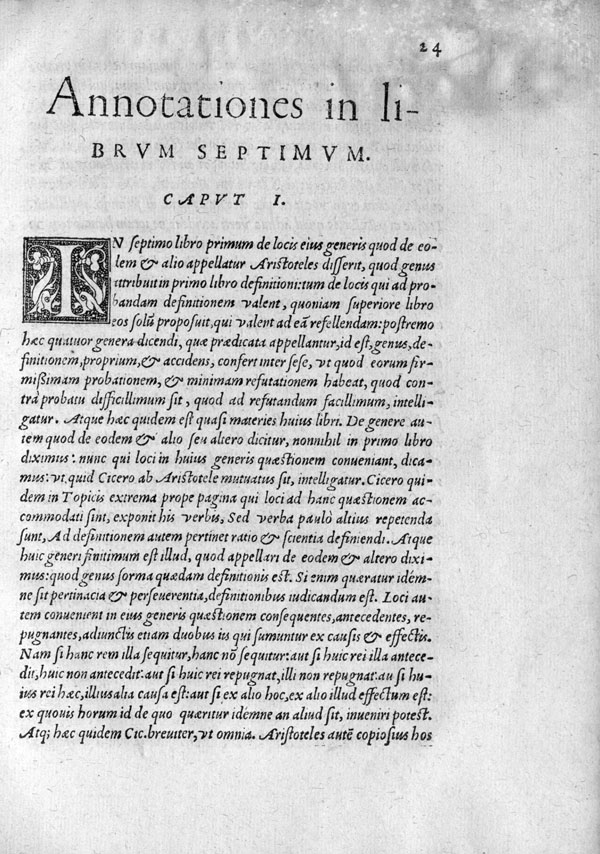 24
Annotationes in li-
BRVM SEPTIMVM.
CAPVT I.
IN septimo libro primum de locis eius generis quod de eo-
dem & alio appellatur Aristoteles disserit, quod genus
attribuit in primo libro definitioni: tum de locis qui ad pro-
bandam definitionem valent, quoniam superiore libro
eos solũ proposuit, qui valent ad eã refellendam: postremo
hæc quatuor genera dicendi, quæ prædicata appellantur, id est, genus, de-
finitionem, proprium, & accidens, confert inter sese, vt quod eorum fir-
missimam probationem, & minimam refutationem habeat, quod con-
trà probatu difficillimum sit, quod ad refutandum facillimum, intelli-
gatur. Atque hæc quidem est quasi materies huius libri. De genere au-
tem quod de eodem & alio seu altero dicitur, nonnihil in primo libro
diximus: nunc qui loci in huius generis quæstionem conueniant, dica-
mus: vt quid Cicero ab Aristotele mutuatus sit, intelligatur. Cicero qui-
dem in Topicis extrema prope pagina qui loci ad hanc quæstionem ac-
commodati sint, exponit his verbis, Sed verba paulò altius repetenda
sunt, Ad definitionem autem pertinet ratio & scientia definiendi. Atque
huic generi finitimum est illud, quod appellari de eodem & altero dixi-
mus: quod genus forma quædam definitionis est. Si enim quæratur idém-
ne sit pertinacia & perseuerentia, definitionibus iudicandum est. Loci au-
tem conuenient in eius generis quæstionem consequentes, antecedentes, re-
pugnantes, adiunctis etiam duobus iis qui sumuntur ex causis & effectis.
Nam si hanc rem illa sequitur, hanc nõ sequitur: aut si huic rei illa antece-
dit, huic non antecedit: aut si huic rei repugnat, illi non repugnat: au si hu-
ius rei hæc, illius alia causa est: aut si ex alio hoc, ex alio illud effectum est:
ex quouis horum id de quo quæritur idemne an aliud sit, inueniri potest.
Atq; hæc quidem Cic. breuiter, vt omnia. Aristoteles autẽ copiosius hos